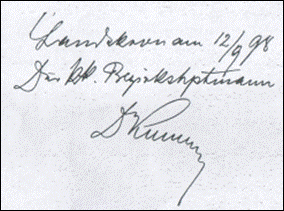 Landskron am 12/9 98
Der k.k. Bezirkshptmann